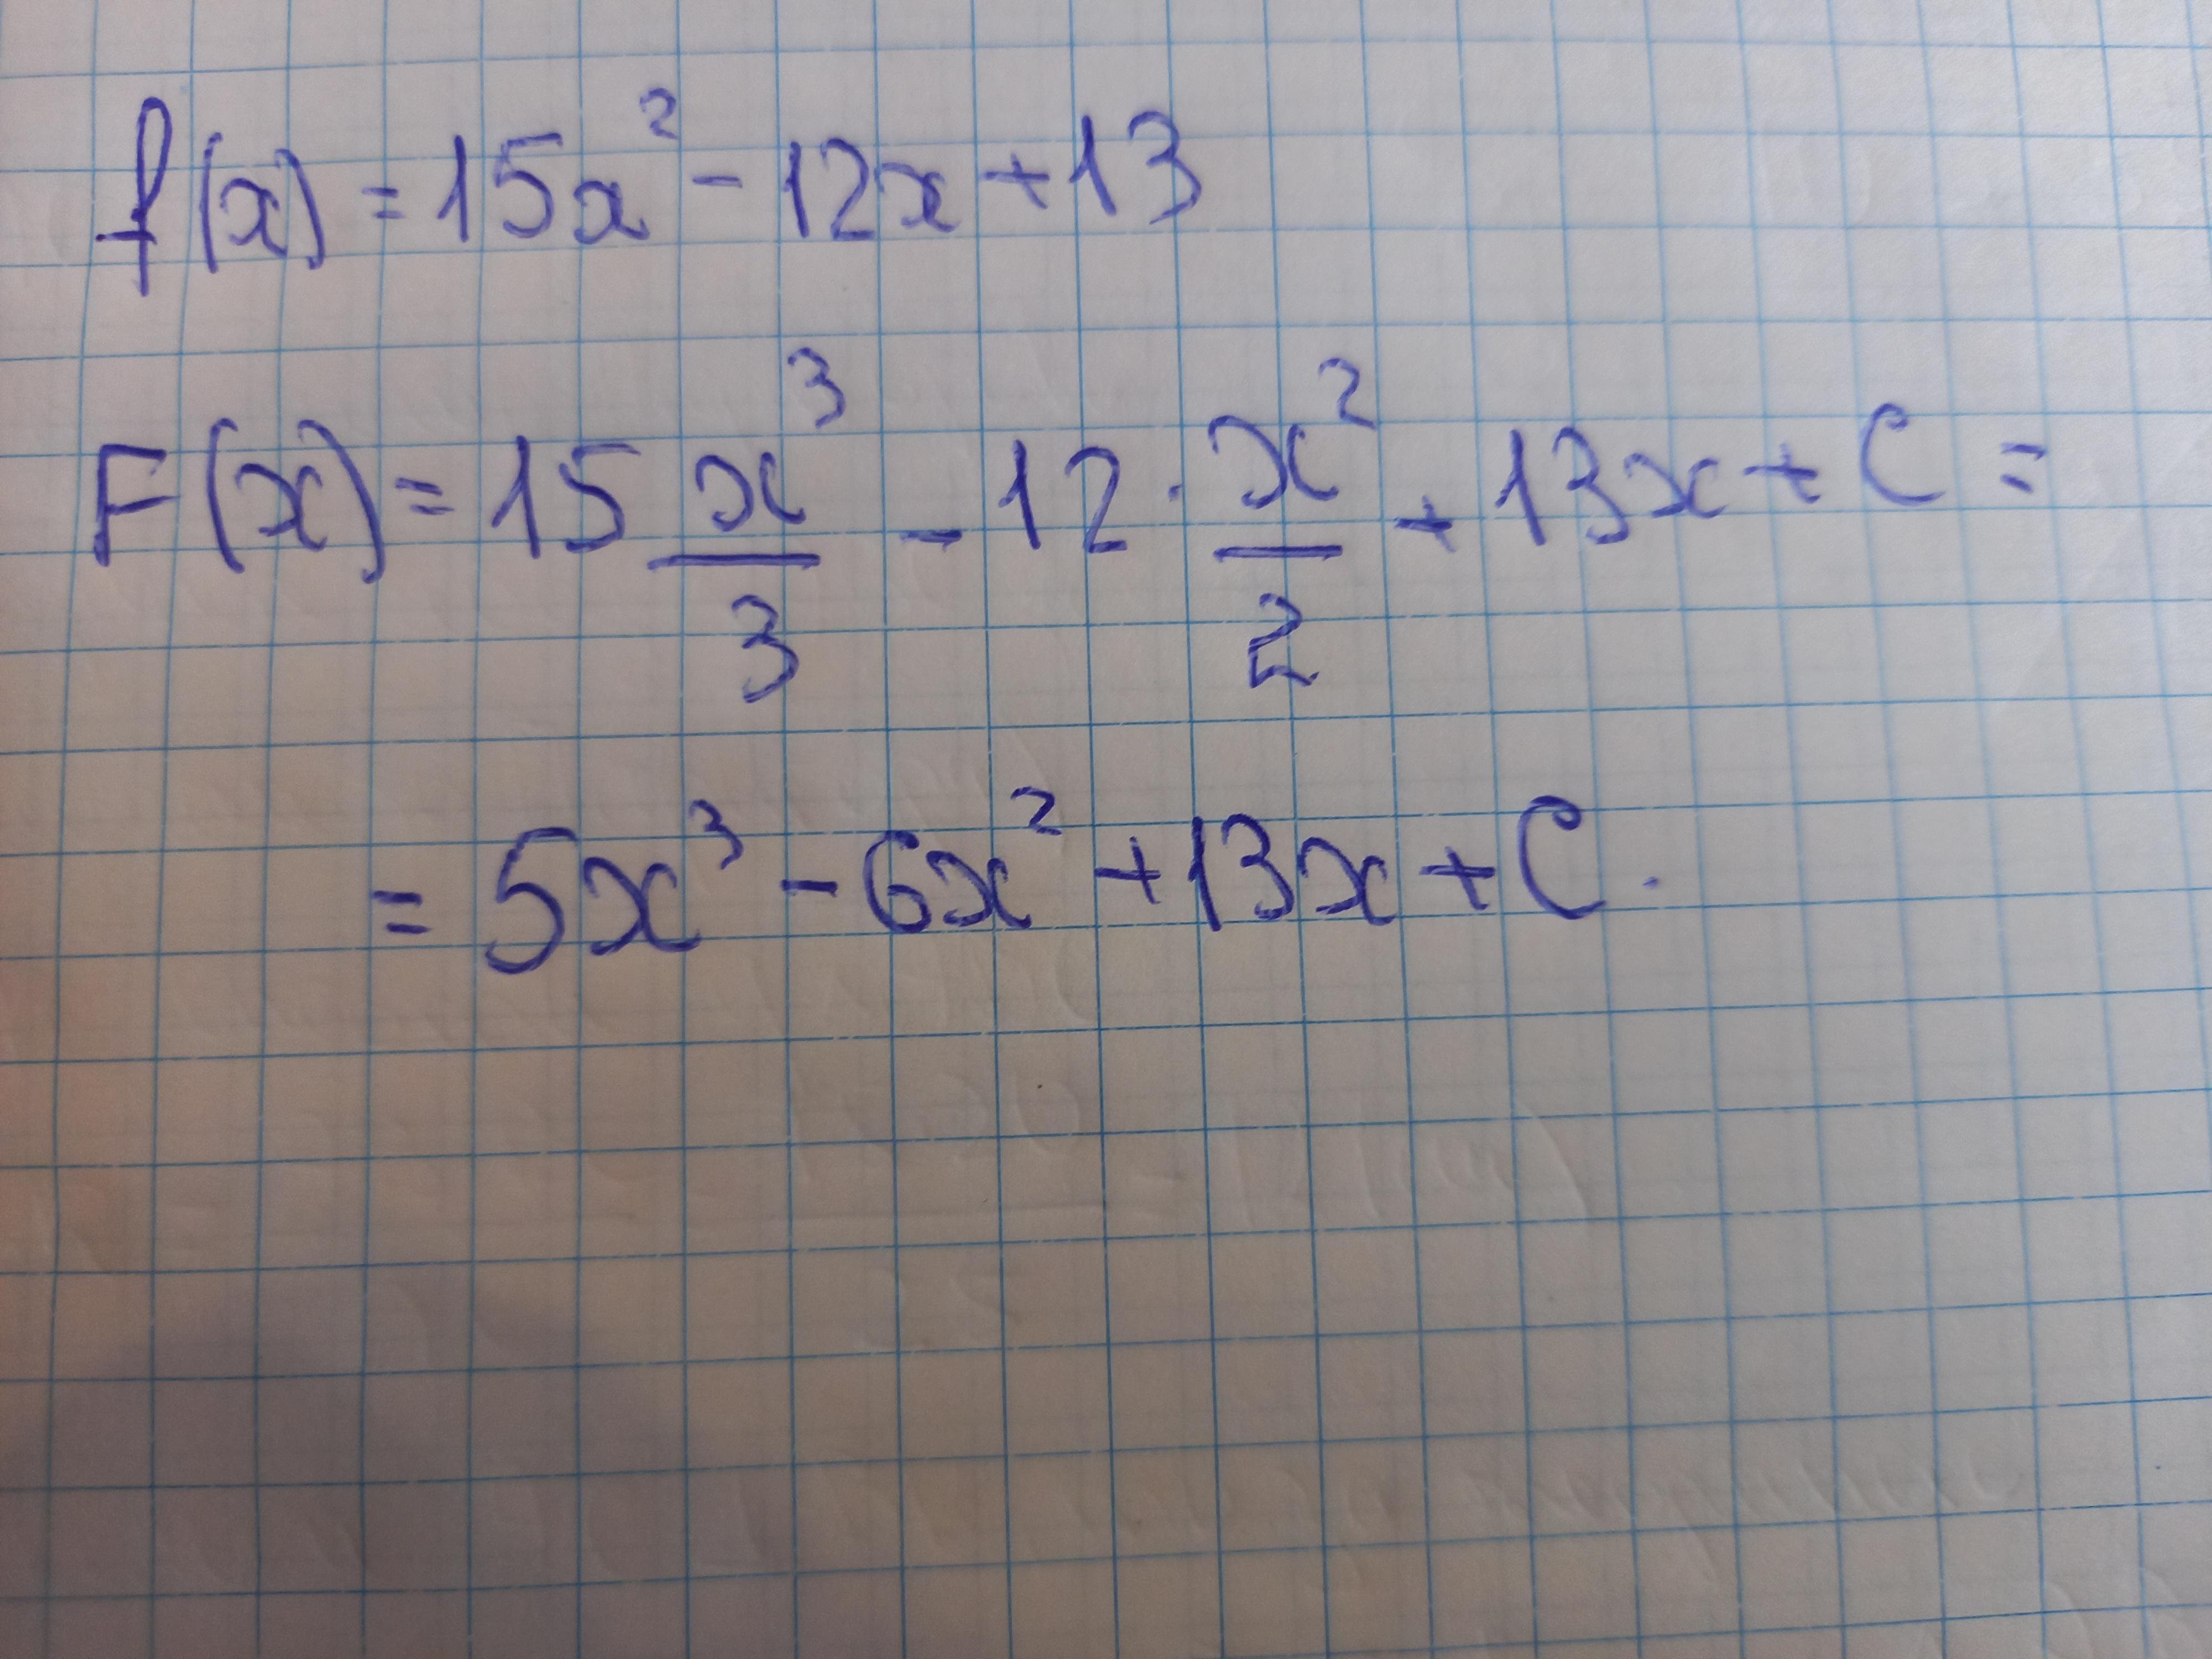 f(x) = 15x² - 12x + 13
F(x) = 15 x³/3 - 12 · x²/2 + 13x + C =
= 5x³ - 6x² + 13x + C.